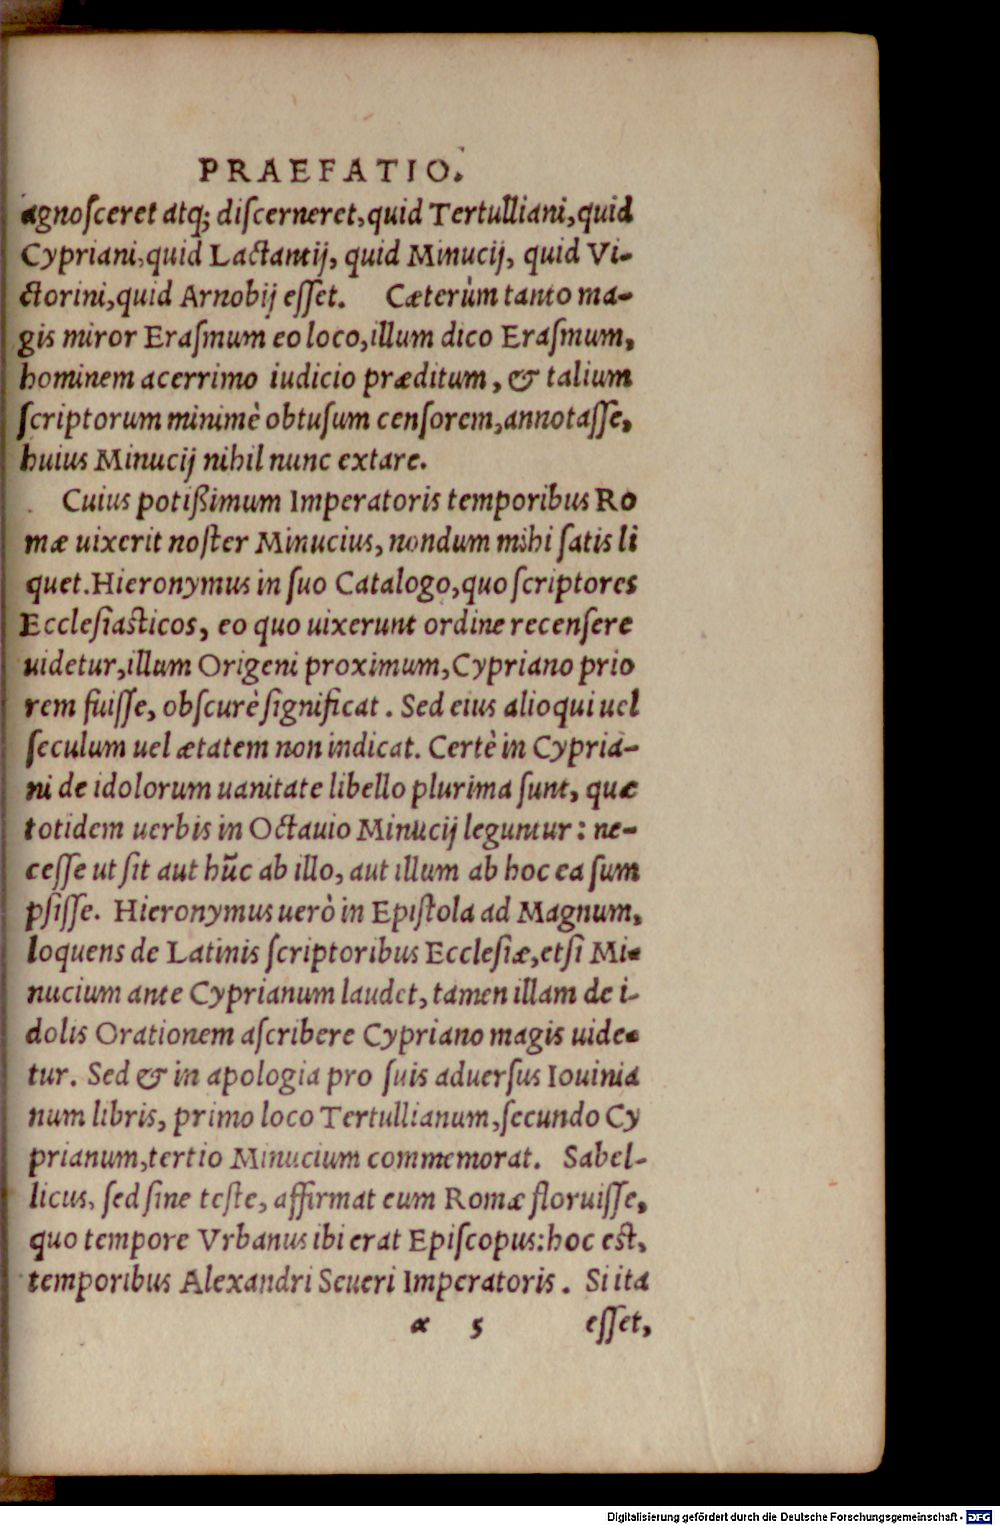 PRAEFATIO.
agnoſceret atq; diſcerneret, quid Tertulliani, quid
Cypriani, quid Lactantij, quid Minucij, quid Vi-
ctorini, quid Arnobij eſſet. Cæterùm tanto ma-
gis miror Eraſmum eo loco, illum dico Eraſmum,
hominem acerrimo iudicio præditum, & talium
ſcriptorum minimè obtuſum cenſorem, annotaſſe,
huius Minucij nihil nunc extare.
Cuius potißimum Imperatoris temporibus Ro
mæ uixerit noſter Minucius, nondum mihi ſatis li
quet. Hieronymus in ſuo Catalogo, quo ſcriptores
Eccleſiaſticos, eo quo uixerunt ordine recenſere
uidetur, illum Origeni proximum, Cypriano prio
rem fuiſſe, obſcurè ſignificat. Sed eius alioqui uel
ſeculum uel ætatem non indicat. Certè in Cypria-
ni de idolorum uanitate libello plurima ſunt, quæ
totidem uerbis in Octauio Minucij leguntur: ne-
ceſſe ut ſit aut hũc ab illo, aut illum ab hoc ea ſum
pſiſſe. Hieronymus uerò in Epiſtola ad Magnum,
loquens de Latinis ſcriptoribus Eccleſiæ, etſi Mi-
nucium ante Cyprianum laudet, tamen illam de i-
dolis Orationem aſcribere Cypriano magis uide-
tur. Sed & in apologia pro ſuis aduerſus Iouinia
num libris, primo loco Tertullianum, ſecundo Cy
prianum, tertio Minucium commemorat. Sabel-
licus, ſed ſine teſte, affirmat eum Romæ floruiſſe,
quo tempore Vrbanus ibi erat Epiſcopus: hoc eſt,
temporibus Alexandri Seueri Imperatoris. Si ita
α 5 eſſet,
Digitalisierung gefördert durch die Deutsche Forschungsgemeinschaft - DFG